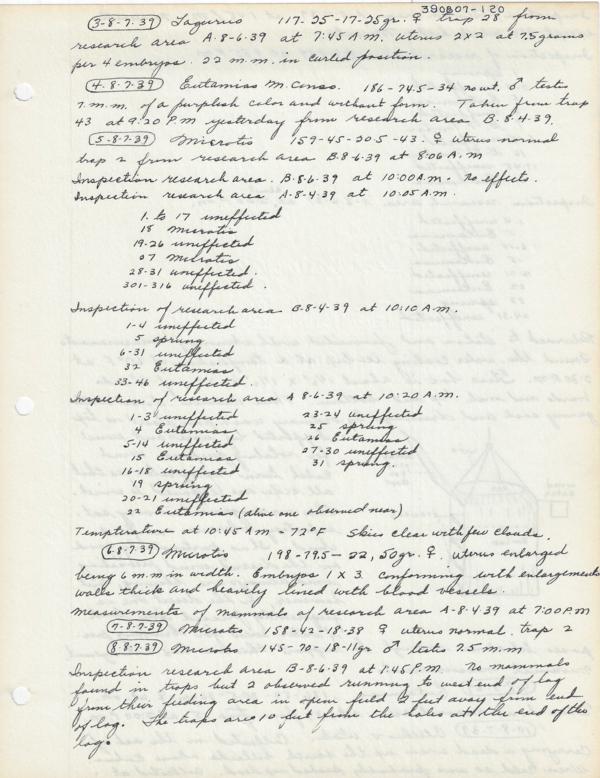 380807-120
(3-8-7-39) Lagurus 117-25-17-25gr. ♀ trap 28 from
research area A-8-6-39 at 7:45 A.M. uterus 2x2 at 7.5 grams
per 4 embryos. 22 m.m. in curled position.
(4-8-7-39) Eutamias M. Conso. 186-74.5-34 no wt. ♂ testes
7.m.m. of a purplish color and without form. Taken from trap
43 at 9:20 P.M yesterday from research area B-8-4-39.
(5-8-7-39) Microtis 159-45-20.5-43. ♀ uterus normal
trap 2 from research area B.8-6-39 at 8:06 A.M
Inspection research area. B-8-6-39 at 10:00 A.M. no effects.
Inspection research area A-8-4-39 at 10:05 A.M.
1. to 17 uneffected
18 Microtis
19-26 uneffected
27 Microtis
28-31 uneffected.
301-316 uneffected.
Inspection of research area B-8-4-39 at 10:10 A.M.
1-4 uneffected
5 sprung
6-31 uneffected
32 Eutamias
33-46 uneffected.
Inspection of research area A 8-6-39 at 10:20 A.M.
1-3 uneffected
4 Eutamias
5-14 uneffected
15 Eutamias
16-18 uneffected
19 sprung
20-21 uneffected
22 Eutamias (alive one observed near)
23-24 uneffected
25 sprung
26 Eutamias
27-30 uneffected
31 sprung.
Tempterature at 10:45 A.M - 72°F Skies clear with few clouds.
(6-8-7-39) Microtis 198-79.5-22, 50gr. ♀. uterus enlarged
being 6 m.m in width. Embryos 1 x 3. conforming with enlargements
walls thick and heavily lined with blood vessels.
Measurements of mammals of research area A-8-4-39 at 7:00 P.M
(7-8-7-39) Microtis 158-42-18-38 ♀ uterus normal. trap 2
(8-8-7-39) Microtis 145-70-18-11gr ♂ testes 7.5 m.m
Inspection research area B-8-6-39 at 1:45 P.M. no mammals
found in traps but 2 observed running to west end of log
from their feeding area in open field 2 feet away from end
of log. The traps are 10 feet from the holes at the end of the
log.